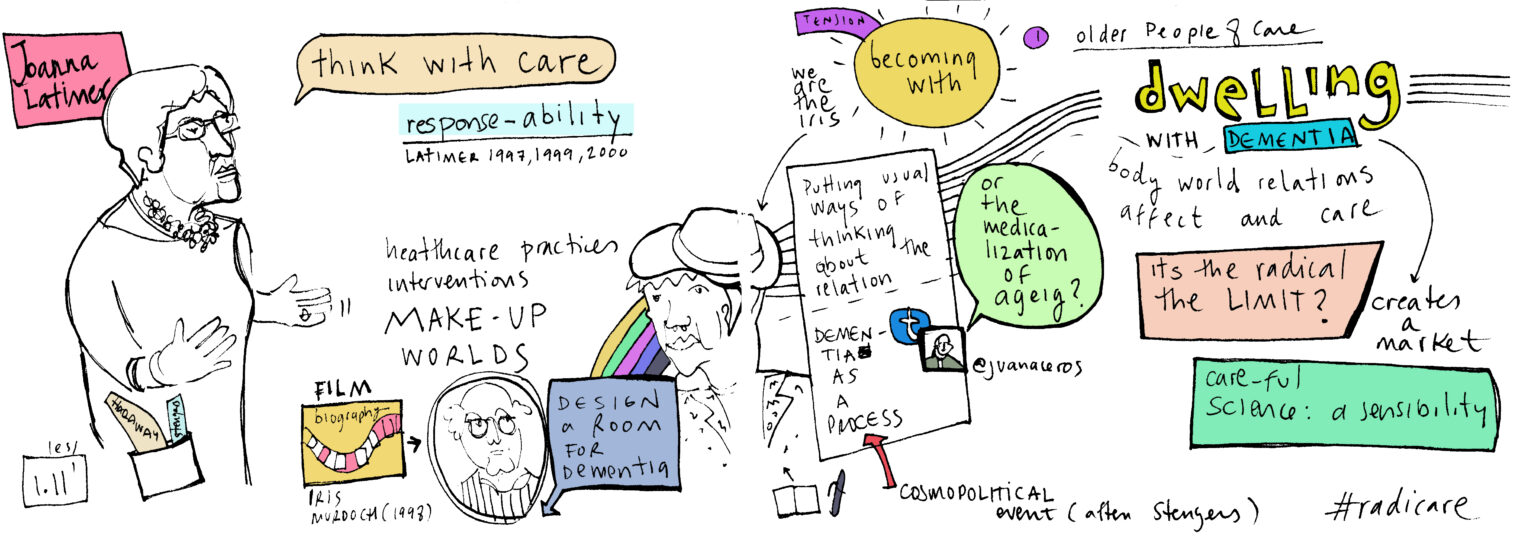 Joanna
Latimer
think with care
response-ability
LATIMER 1997, 1999, 2000
healthcare practices
interventions
MAKE-UP
WORLDS
HARAWAY
less
1.11'
FILM
biography
IRIS
MURDOCH (1998)
DESIGN
a ROOM
FOR
Dementia
TENSION
becoming
with
we
are
the
iris
Putting usual
ways of
thinking
about the
relation
DEMEN-
TIA
AS
A
PROCESS
t
or
the
medica-
lization
of
ageig?
@juanaceros
COSMOPOLITICAL
event (after Stengers)
1
older People & Care
dwelling
WITH DEMENTIA
body world relations
affect and care
its the radical
the LIMIT?
creates
a
market
care-ful
science: a sensibility
#radicare